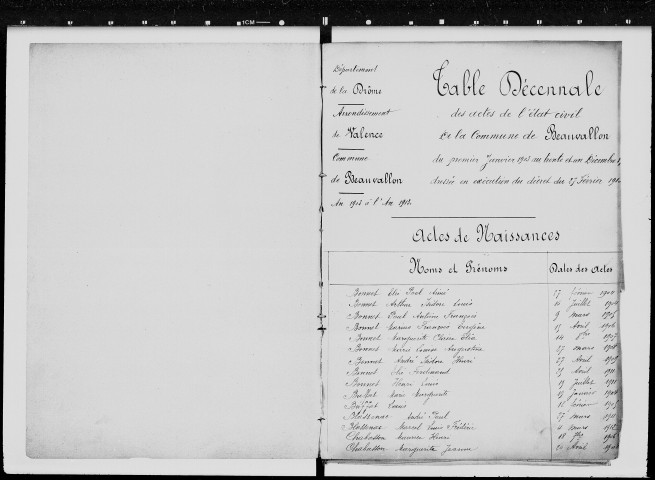 1CM
Département
de la Drôme
Arrondissement
de Valence
Commune
de Beauvallon
An 1903 à l'An 1912
Table Décennale
des actes de l'état civil
De la Commune de Beauvallon
du premier Janvier 1903 au trente et un Décembre
dressée en exécution du décret du 27 Février
Actes de Naissances
Noms et Prénoms Dates des Actes
Bonnet Elie Paul Aimé 17 février 1904
Bonnet Arthur Isidore Louis Juillet 1904
Bonnet Paul Antoine François 9 mars 1905
Bonnet Marius François Eugène 15 Avril 1906
Bonnet Marguerite Elia 14 1907
Bonnet Louise Augustine 27 mars 1908
Bonnet André Isidore Henri 27 Avril 1909
Bonnet Elie Ferdinand 19 Avril 1911
Bonnet Henri Louis 19 Juillet 1911
Buffat Marie Marguerite 19 Janvier 1904
Buffat Louis février
Blassenac André Paul 27 mars
Blassenac Marcel Louis Frédéric mars 1912
Chabasson Maurice Henri 18
Chabasson Marguerite Jeanne Avril